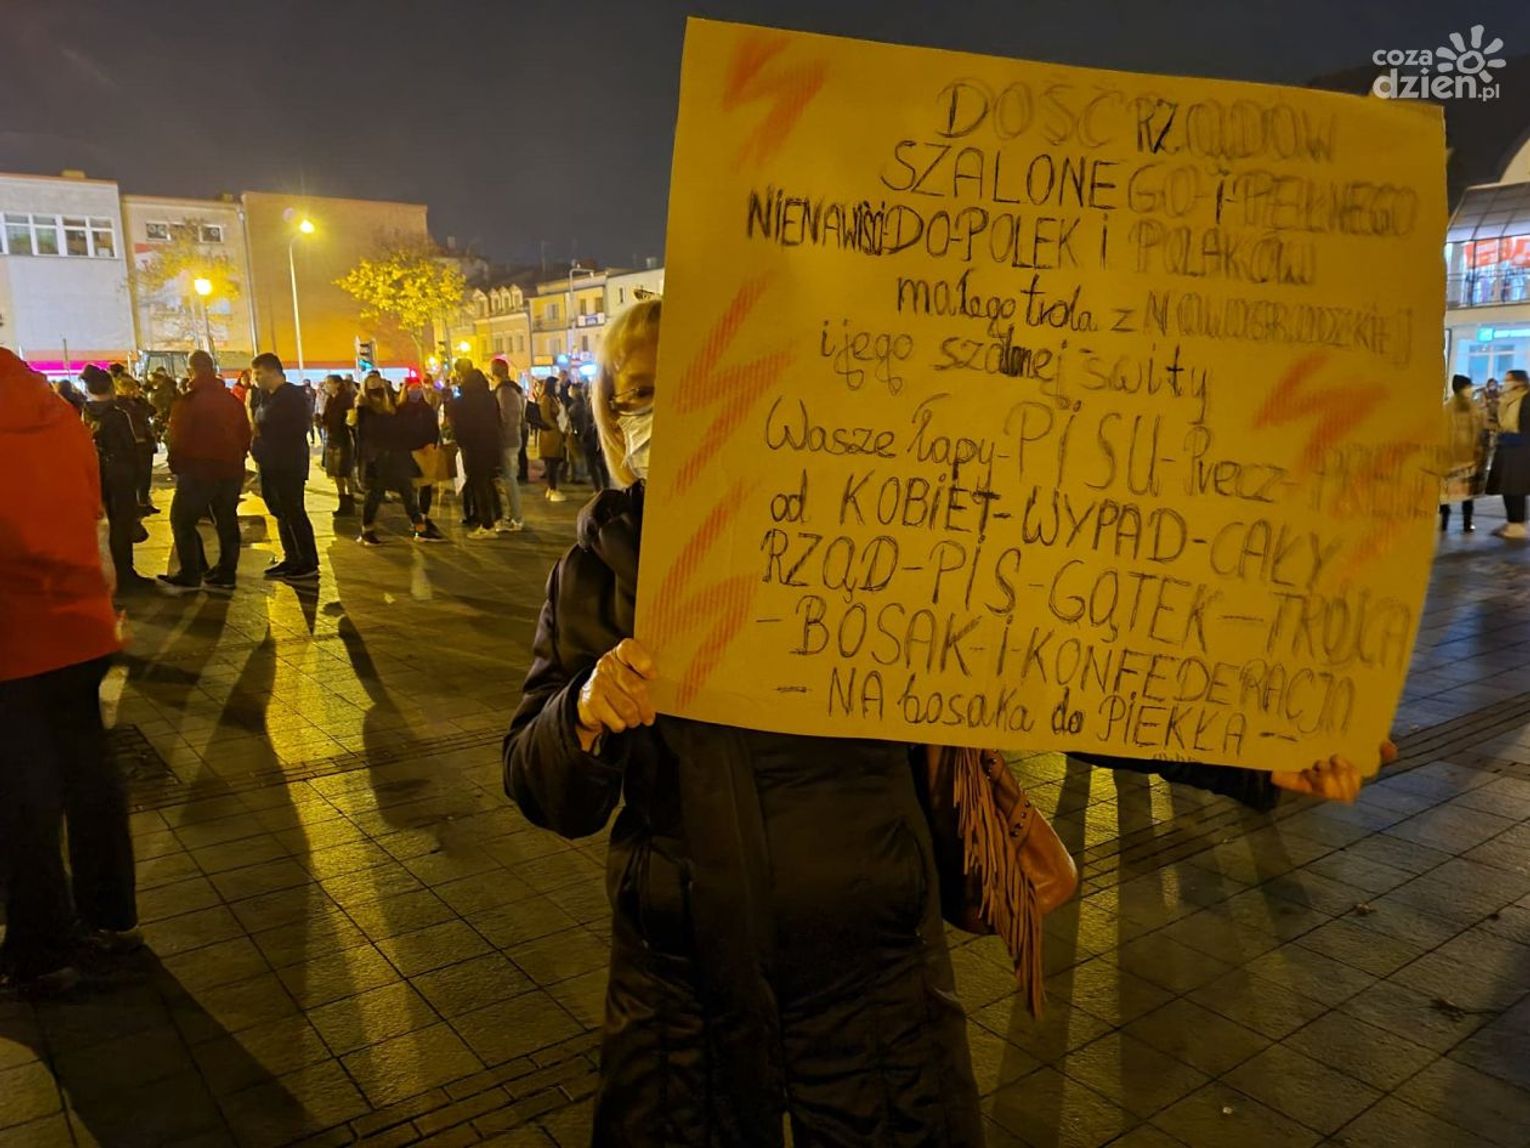 coza
dzien.pl
DOŚĆ RZĄDÓW
SZALONEGO-i-PEŁNEGO
NIENAWIŚCI-DO-POLEK i POLAKÓW
małego trola z NOWOGRODZKIEJ
i jego szalonej-świty
Wasze łapy-PISU-Precz-PRECZ
od KOBIET-WYPAD-CAŁY
RZĄD-PIS-GĄTEK-TRÓJCA
-BOSAK-i-KONFEDERACJA
-NA bosaka do PIEKŁA-